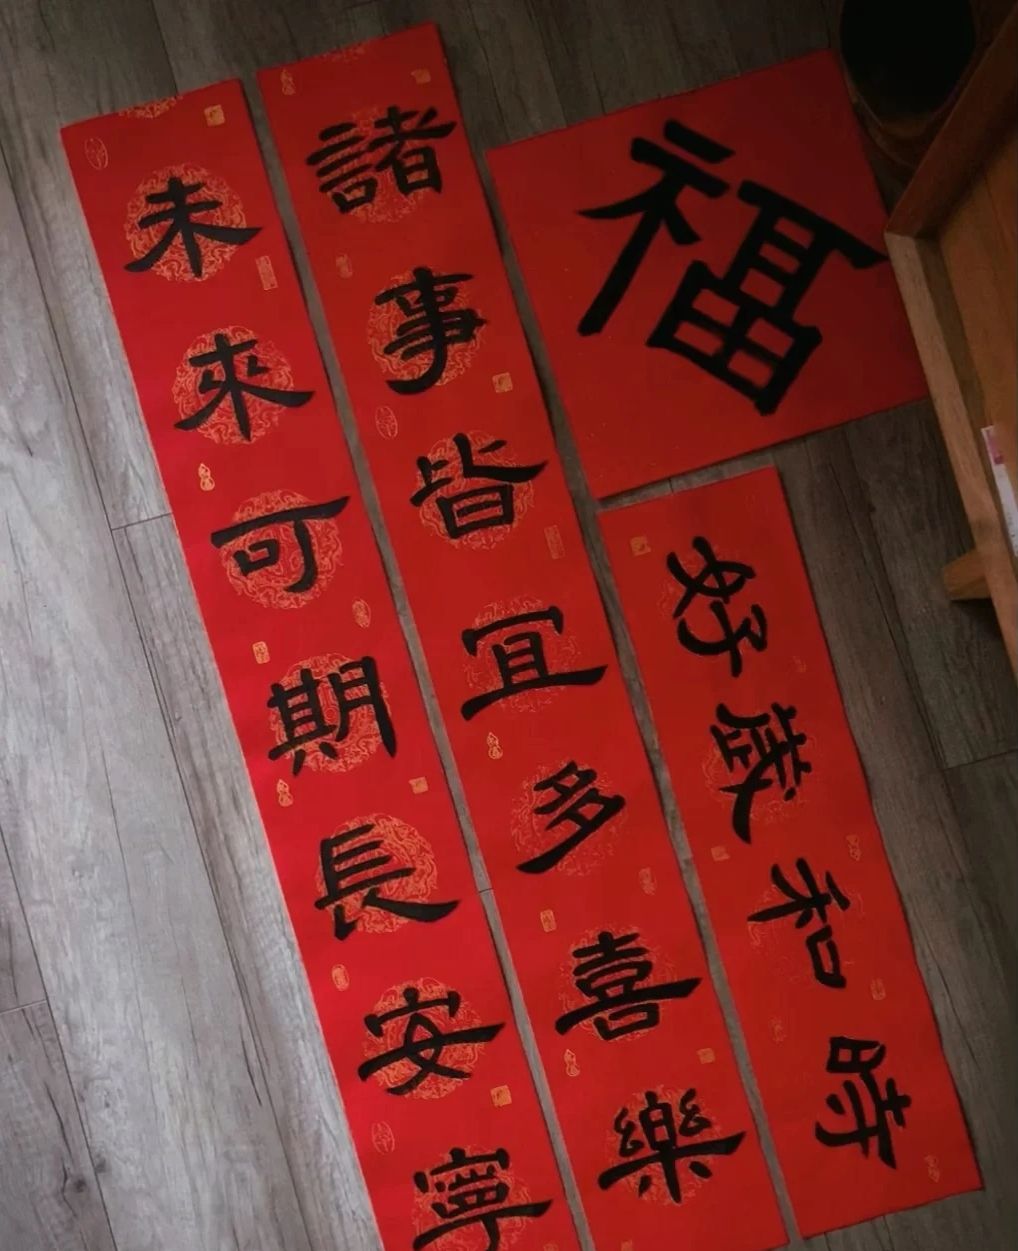 福
諸事皆宜多喜樂
未來可期長安寧
時和歲好